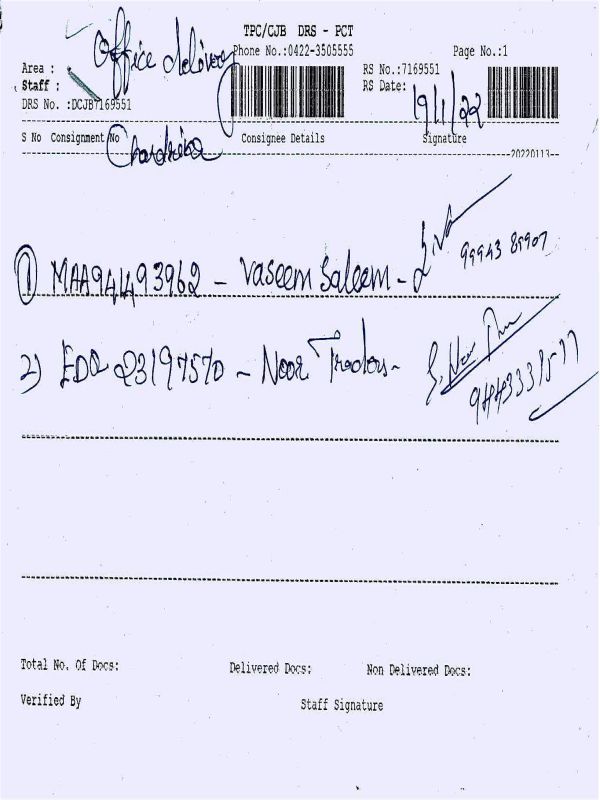 TPC/CJB DRS - PCT
Office delivery
Phone No.:0422-3505555
Page No.:1
Area :
RS No.:7169551
Staff :
RS Date: 19/1/22
DRS No. :DCJB7169551
S No Consignment No Consignee Details Signature
20220113
① MAA941493962 - Vaseem Saleem - 99943 89907
2) EDQ 23197570 - Noor Traders - 
Total No. Of Docs: Delivered Docs: Non Delivered Docs:
Verified By Staff Signature